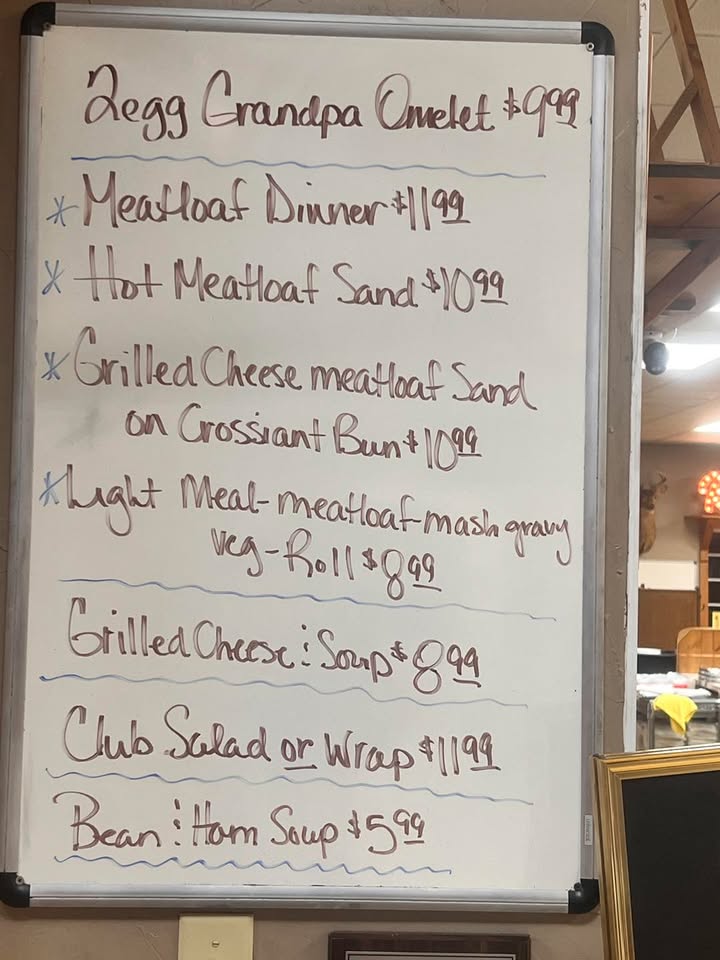 2egg Grandpa Omelet $9.99
* Meatloaf Dinner $11.99
* Hot Meatloaf Sand $10.99
* Grilled Cheese meatloaf Sand
on Crossiant Bun $10.99
* Light Meal-meatloaf-mash gravy
veg-Roll $8.99
Grilled Cheese & Soup $8.99
Club Salad or Wrap $11.99
Bean & Ham Soup $5.99